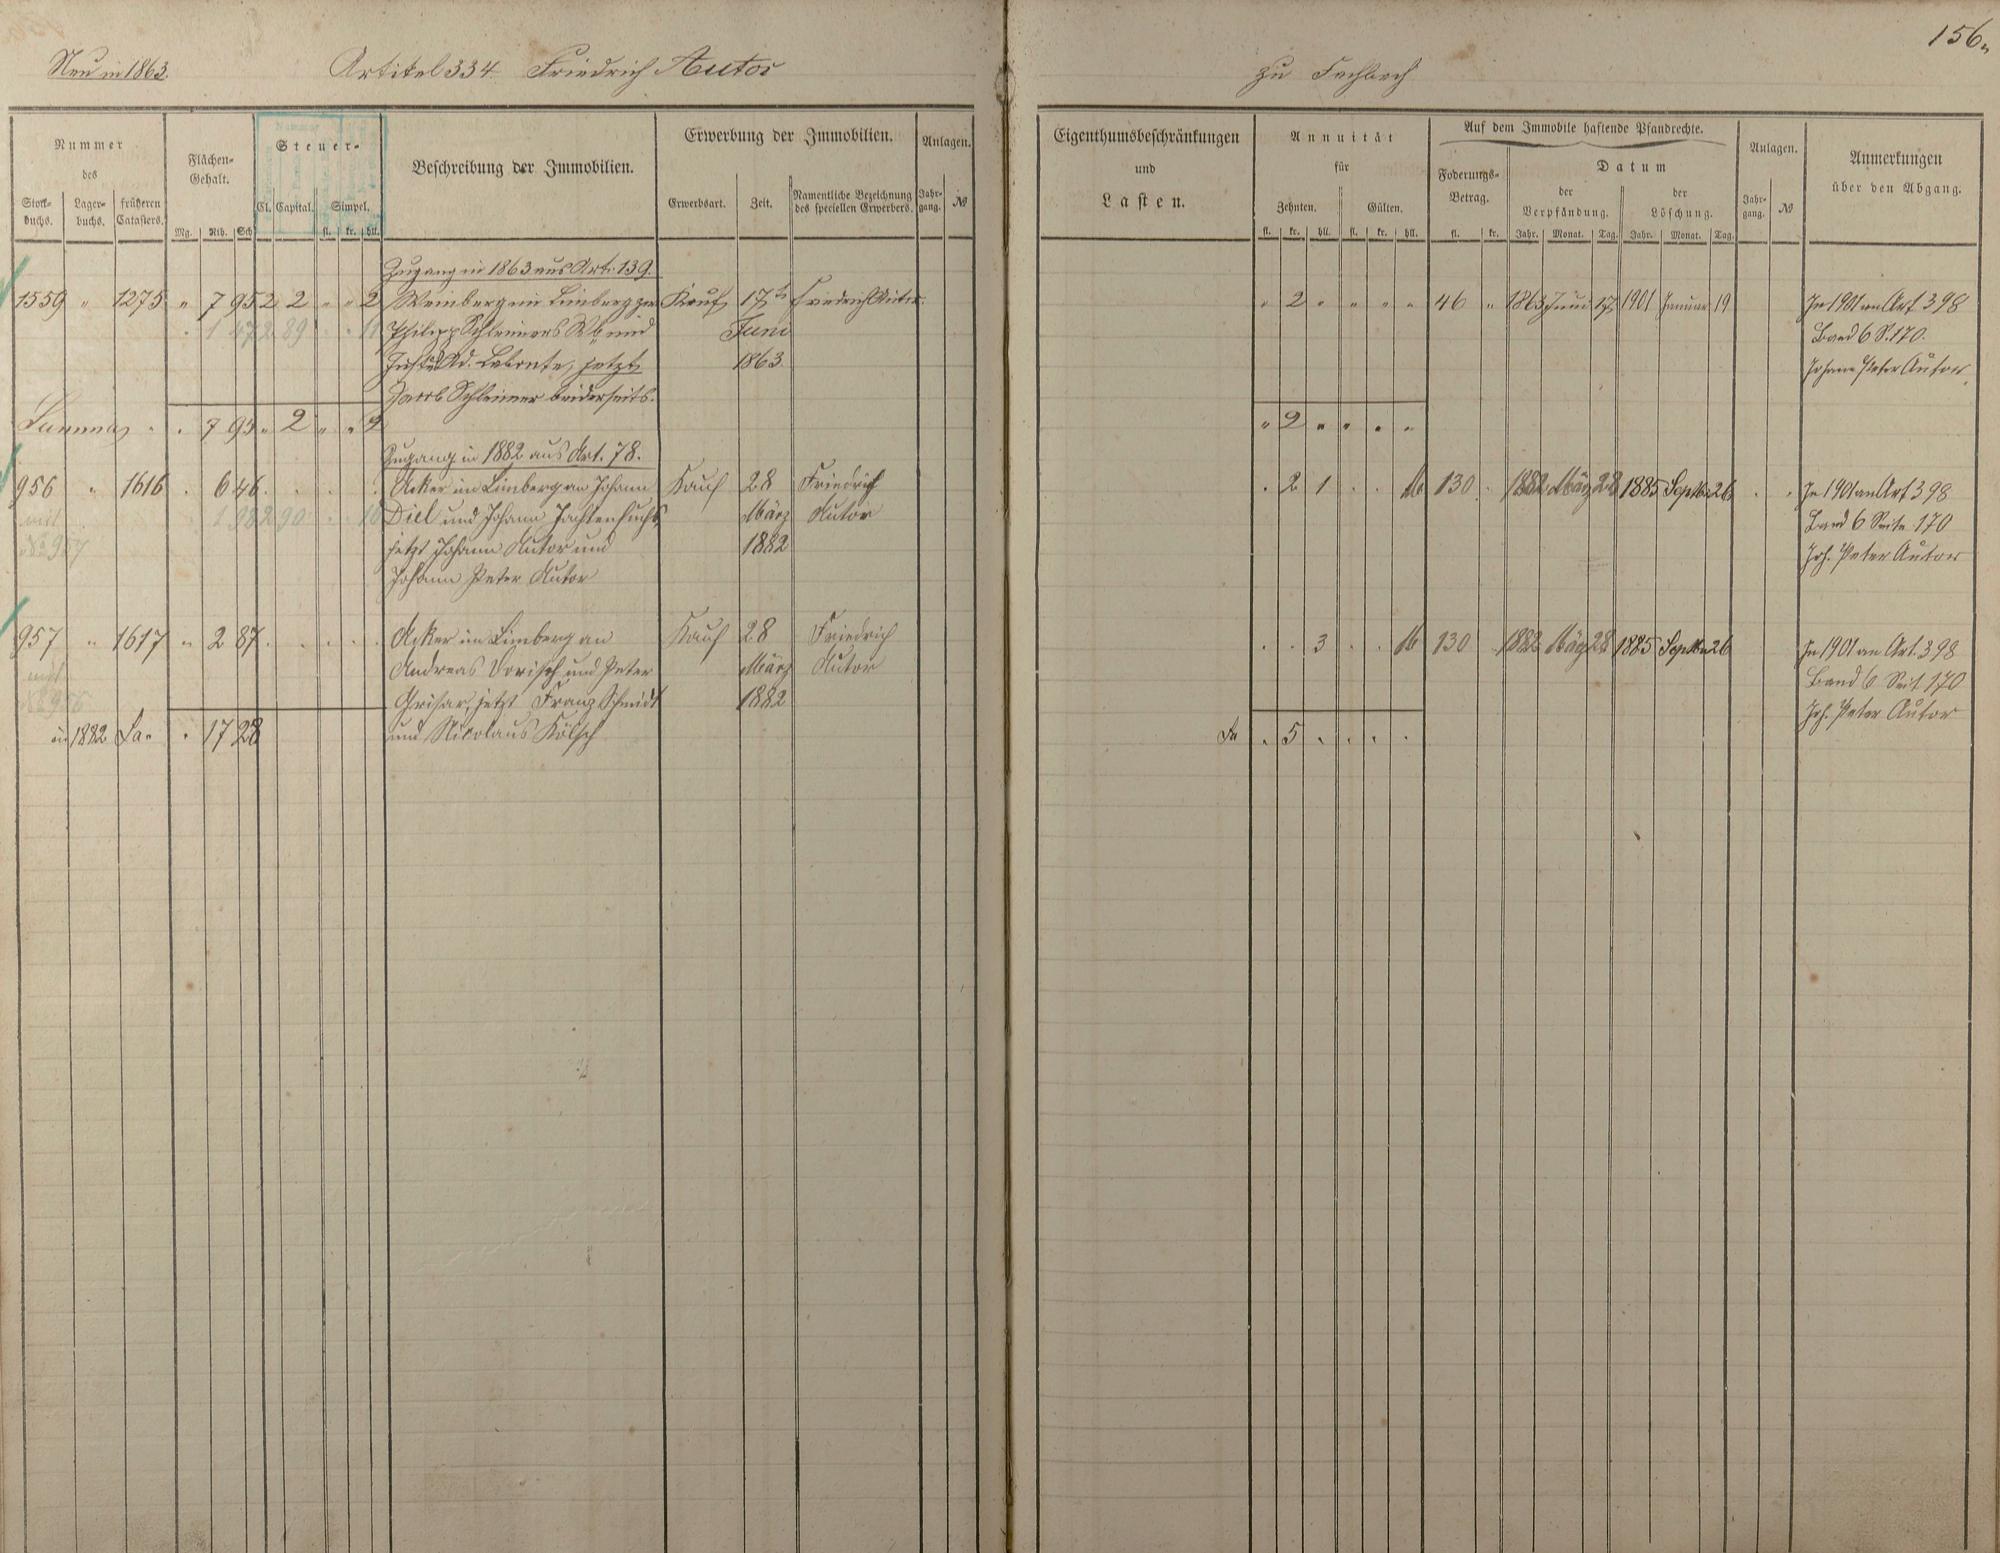 156.
Neu in 1863.
Artikel 334. Friedrich Autor
zu Fachbach
Nummer
des
Stock-
buchs.
Lager-
buchs.
früheren
Catasters.
Flächen-
Gehalt.
Mg. Rth. Sch.
Steuer-
Cl. Capital. Simpel.
fl. kr. hll.
Beschreibung der Immobilien.
Erwerbung der Immobilien.
Erwerbsart. Zeit.
Namentliche Bezeichnung
des speciellen Erwerbers.
Anlagen.
Jahr-
gang. №
Eigenthumsbeschränkungen
und
Lasten.
Annuität
für
Zehnten. Gülten.
fl. kr. hll. fl. kr. hll.
Auf dem Immobile haftende Pfandrechte.
Foderungs-
Betrag.
fl. kr.
Datum
der
Verpfändung.
Jahr. Monat. Tag.
der
Löschung.
Jahr. Monat. Tag.
Anlagen.
Jahr-
gang. №
Anmerkungen
über den Abgang.
Zugang in 1863 aus Art. 139.
1559 " 1275 " 7 95 2 2 " " 2 Weinberg im Limberg Kauf 17 Friedrich Autor " 2 " " " " 46 " 1863 Juni 17 1901 Januar 19 In 1901 an Art 398
1 47 2 89 11 Philipp Schleimers und Juni Band 6 S. 170.
jetzt 1863 Johann Peter Autor
Jacob Schleimer beiderseits.
Summa . . 7 95 " 2 " " 2 " 2 " " " "
Zugang in 1882 aus Art. 78.
956 " 1616 . 6 46 Acker im Limberg an Johann Kauf 28 Friedrich . 2 1 . . 130 1882 März 28 1885 Septbr 26 In 1901 an Art 398
mit 1 98 2 90 Diel und Johann März Autor Band 6 Seite 170
№ 957 jetzt Johann Autor und 1882 Joh. Peter Autor
Johann Peter Autor
957 " 1617 " 2 87 Acker im Limberg an Kauf 28 Friedrich . . 3 . . 130 1882 März 28 1885 Septbr 26 In 1901 an Art. 398
mit Andreas und Peter März Autor Band 6 Seit 170
№ 956 Grisar, jetzt Franz Schmidt 1882 Joh. Peter Autor
in 1882 Sa. . 17 28 und Nicolaus Kölsch Sa . 5 . . . .